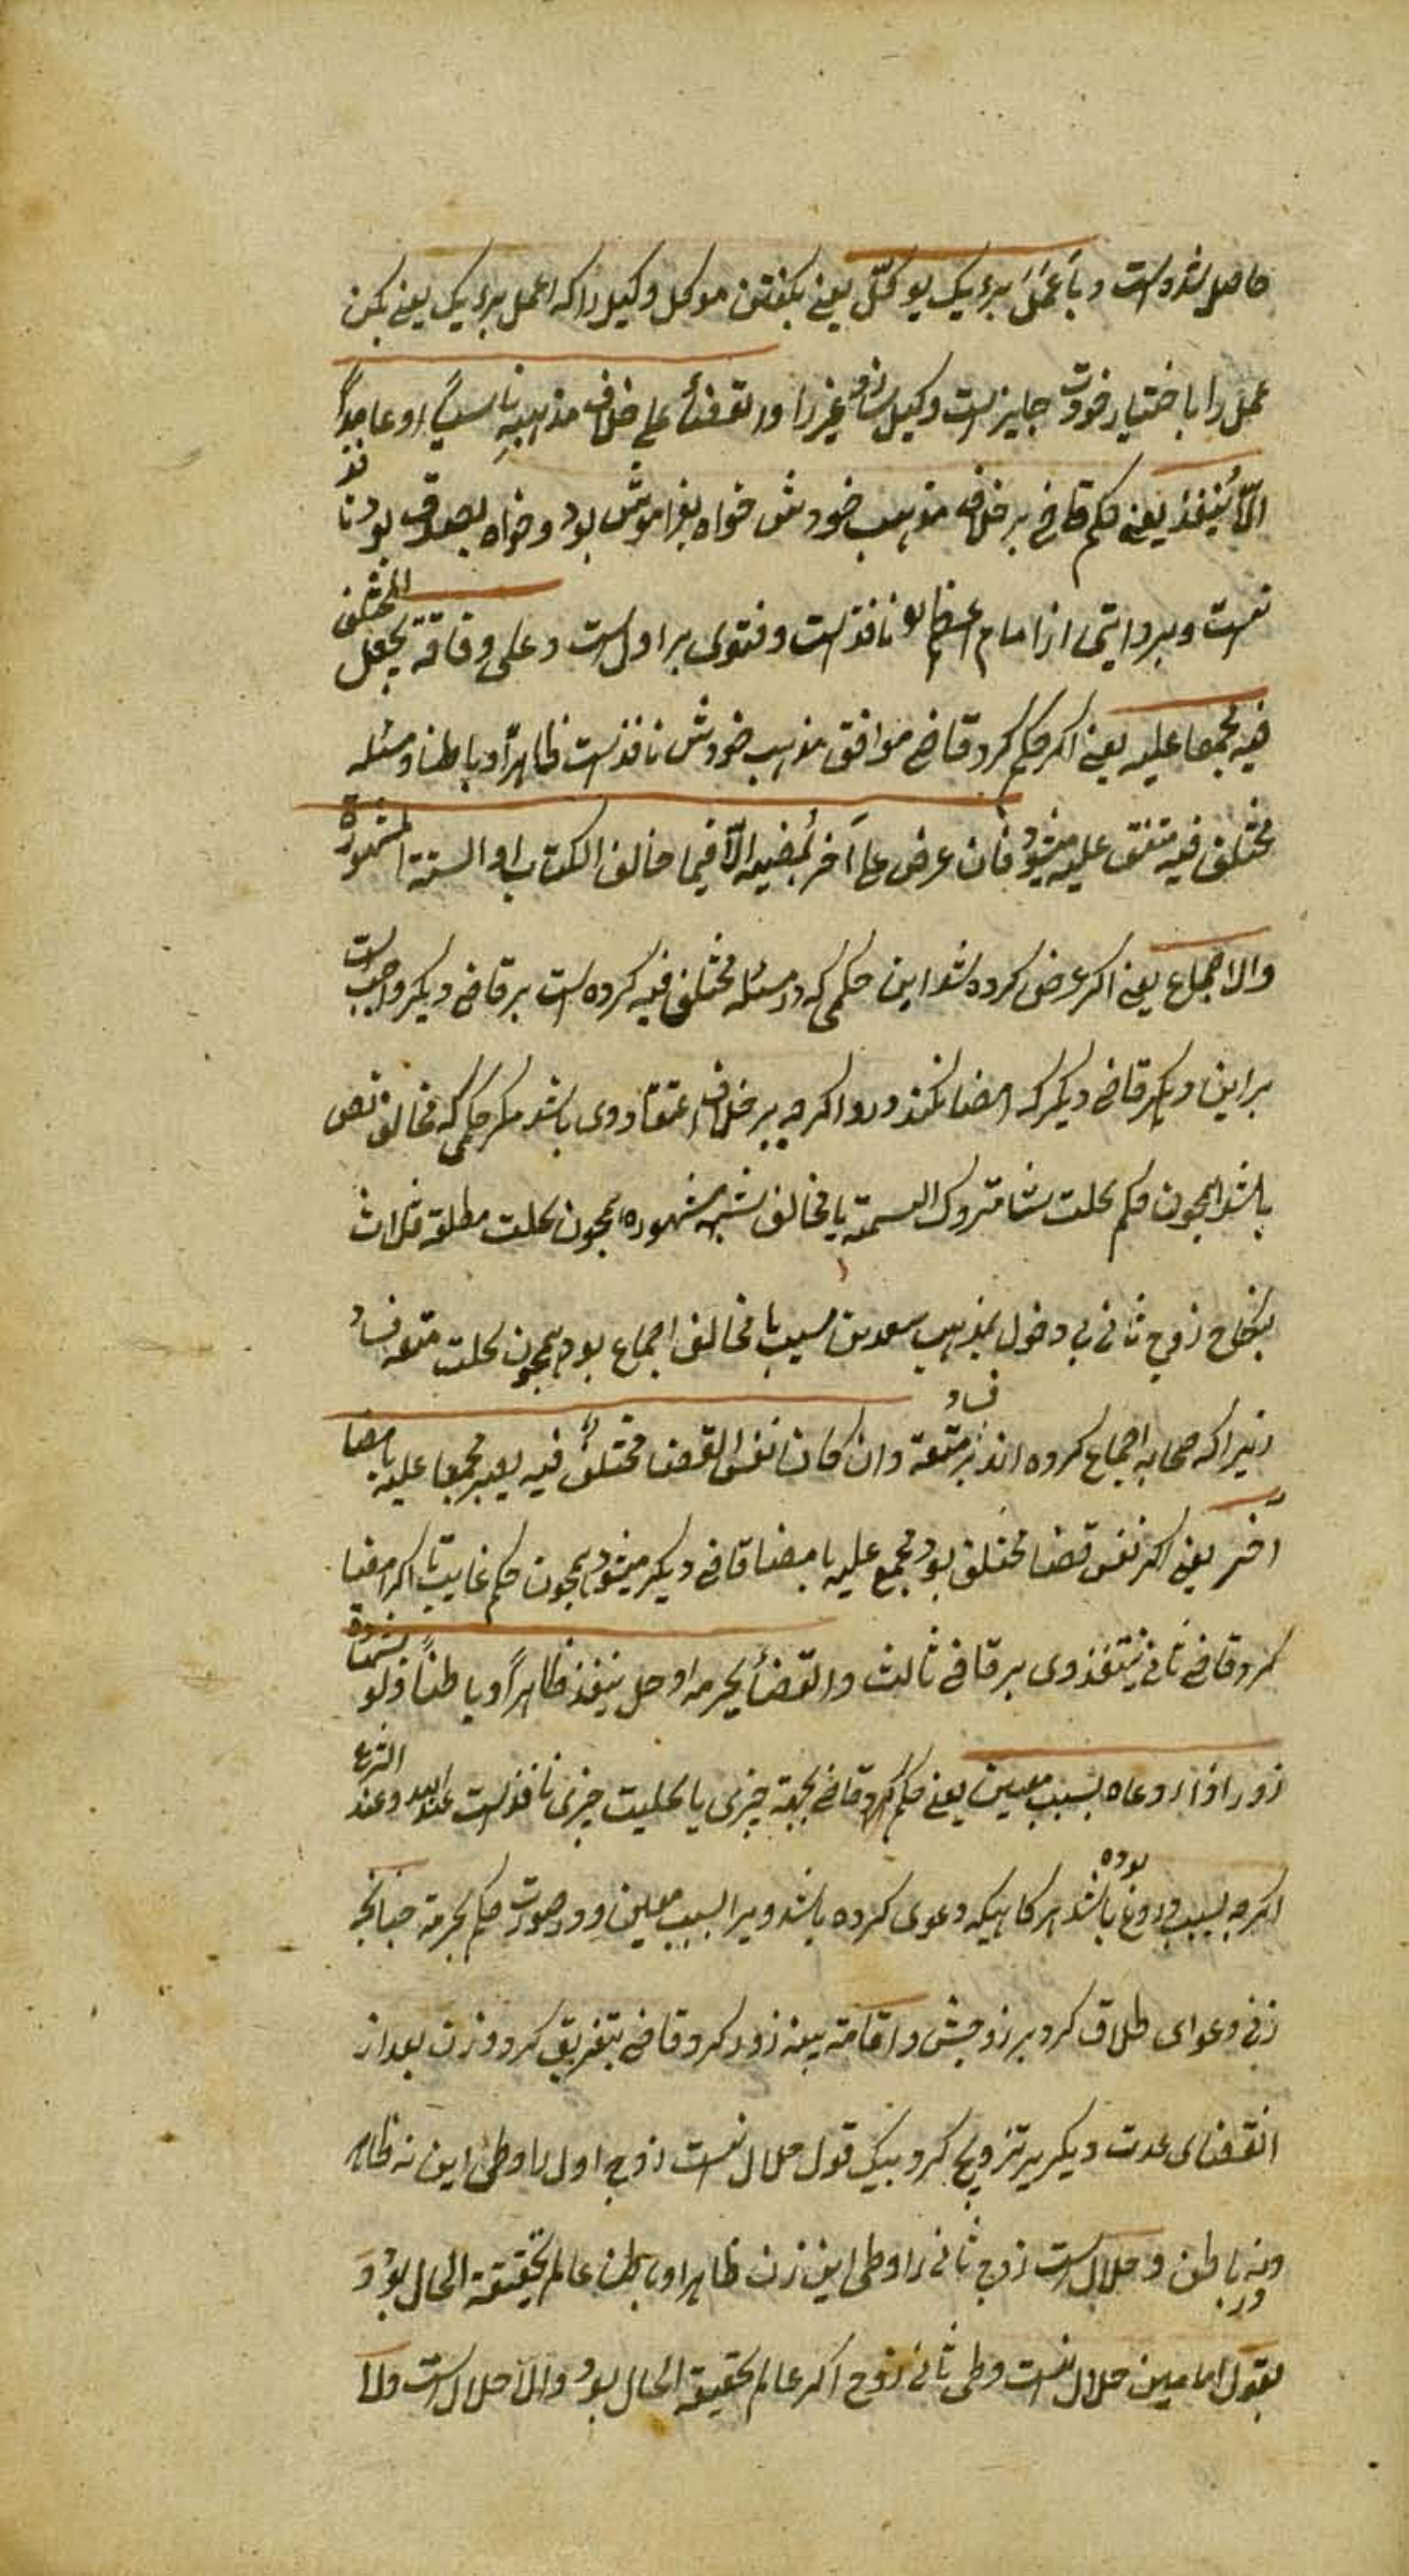 حاصل شده است و باِعْمَلْ برءیک یوکّل یعنی بکفتن موکل وکیل را که اعمل برءیک یعنی بکن
عمل را باختیار خودت جایز است وکیل سازد غیر را والقضأ علی خلاف مذهبه ناسیاً او عامداً
الّا یُنفذ یعنی حکم قاضی بر خلاف مذهب خودش خواه بفراموش بود و خواه بعمد بود نافذ
نیست و بروایتی از امام اعظم نافذ است و فتوی بر اول است و علی وفاقه یجعل المختلف
فیه مجمعا علیه یعنی اکر حکم کرد قاضی موافق مذهب خودش نافذ است ظاهراً و باطنا و مسئله
مختلف فیه متفق علیه میشود فان عرض علی آخر یُمضیه الّا فیما خالف الکتاب او السنة المشهورة
والاجماع یعنی اکر عرض کرده شد این حکمی که در مسئله مختلف فیه کرده است بر قاضی دیکر واجب است
بر این دیکر قاضی دیکر که امضا کند ورد اکرچه بر خلاف اعتقاد وی باشد مکر حکمی که مخالف نص
باشد همچون حکم بحلت شا متروک التسمیة یا مخالف سنة مشهوره همچون بحلت مطلقه ثلاث
بنکاح زوج ثانی بی دخول بمذهب سعد بن مسیب یا مخالف اجماع بود همچون بحلت متعه فساد
زیرا که صحابه اجماع کرده اند بر فساد متعة وان کان نفس القضا مختلف فیه یصیر مجمعا علیه بامضا
آخر یعنی اکر نفس قضا مختلف بود مجمع علیه بامضا قاضی دیکر میشود همچون حکم غایب تا اکر امضا
کرد قاضی ثانی ینتفذ وی بر قاضی ثالث والقضأ بحرمة او حل ینفذ ظاهراً و باطناً ولو بشهادة
زور اذا ادعاه بسبب معین یعنی حکم کرد قاضی بحرمة چیزی یا بحلیت چیزی نافذ است عند الله و عند الشرع
اکرچه بسبب دروغ بوده باشد هر کاهیکه دعوی کرده باشد ویرا بسبب معین و در صورت حکم بحرمة چنانچه
زنی دعوای طلاق کرد بر زوجش و اقامة بینه زور کرد و قاضی بتفریق کرد و زن بعد از
انقضای عدت دیکر بر تزویج کرد بیک قول حلال نیست زوج اول را وطی این نه ظاهر
ونه باطن و حلال است زوج ثانی را وطی این زن ظاهرا و باطن عالم بحقیقة الحال بود و
بقول امامین حلال نیست وطی ثانی زوج اکر عالم بحقیقة الحال بود والّا حلال است ولا